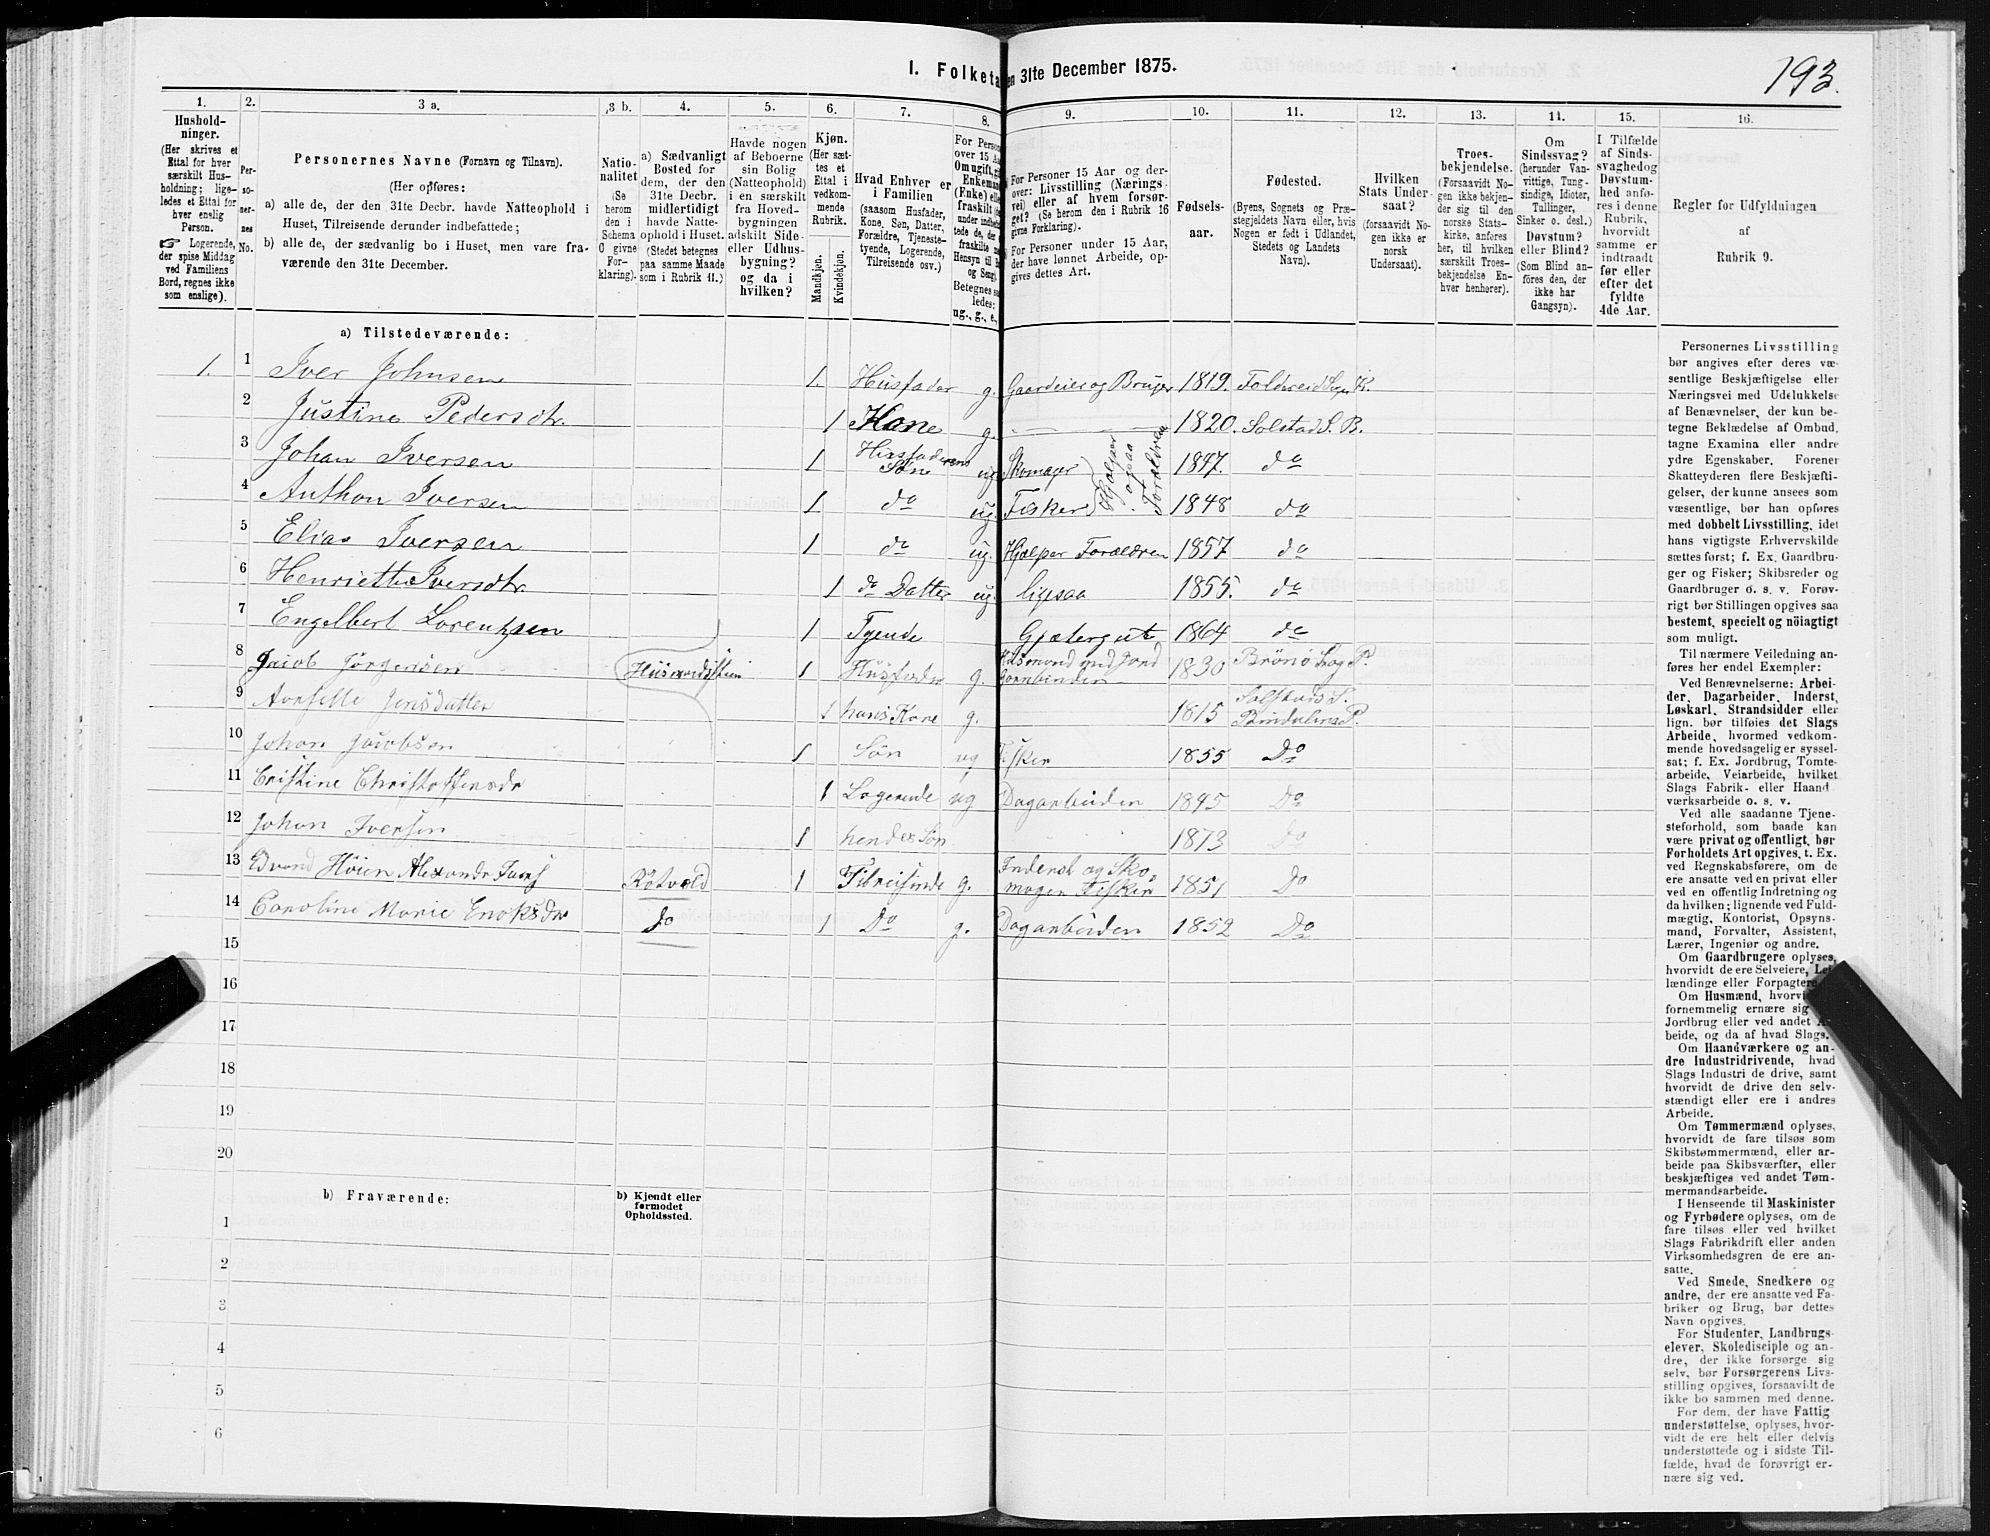 I. Folketa
en 31te December 1875.
193.
1. 2. 3 a. 3 b. 4. 5. 6. 7. 8. 9. 10. 11. 12. 13. 14. 15. 16.
Hushold-
ninger.
(Her skrives et
Ettal for hver
særskilt Hus-
holdning; lige-
ledes et Ettal for
hver enslig
Person.
☞ Logerende,
der spise Middag
ved Familiens
Bord, regnes ikke
som enslige).
Per-
so-
ner-
nes
No.
Personernes Navne (Fornavn og Tilnavn).
(Her opføres:
a) alle de, der den 31te Decbr. havde Natteophold i
Huset, Tilreisende derunder indbefattede;
b) alle de, der sædvanlig bo i Huset, men vare fra-
værende den 31te December.
Natio-
nalitet
(Se
herom
den i
Schema
C givne
For-
klaring).
a) Sædvanligt
Bosted for
dem, der den
31te Decbr.
midlertidigt
havde Natte-
ophold i Huset.
(Stedet betegnes
paa samme Maade
som i Rubrik 11.)
Havde nogen
af Beboerne
sin Bolig
(Natteophold)
i en særskilt
fra Hoved-
bygningen
adskilt Side-
eller Udhus-
bygning?
og da i
hvilken?
Kjøn.
(Her sæt-
tes et
Ettal i
vedkom-
mende
Rubrik.
Mandkjøn.
Kvindekjøn.
Hvad Enhver er
i Familien
(saasom Husfader,
Kone, Søn, Datter,
Forældre, Tjeneste-
tyende, Logerende,
Tilreisende osv.)
For Person
over 15 Aa
Om ugift, gi
Enkemand
(Enke) elle
fraskilt
Betegnes sa
ledes:
ug., g., e.,
For Personer 15 Aar og der-
over: Livsstilling (Nærings-
vei) eller af hvem forsør-
get? (Se herom den i Rubrik 16
givne Forklaring).
For Personer under 15 Aar,
der have lønnet Arbeide, op-
gives dettes Art.
Fødsels-
aar.
Fødested.
(Byens, Sognets og Præ-
stegjeldets Navn eller, hvis
Nogen er født i Udlandet,
Stedets og Landets
Navn).
Hvilken
Stats Under-
saat?
(forsaavidt No-
gen ikke er
norsk
Undersaat).
Troes-
bekjendelse.
(Forsaavidt No-
gen ikke bekjen-
der sig til den
norske Stats-
kirke, anføres
her, til hvilken
særskilt Troes-
bekjendelse En-
hver henhører).
Om
Sindssvag?
(herunder Van-
vittige, Tung-
sindige, Idioter,
Tullinger,
Sinker o. desl.)
Døvstum?
eller Blind?
(Som Blind an-
føres den, der
ikke har
Gangsyn).
I Tilfælde
af Sinds-
svaghed og
Døvstum-
hed anfø-
res i denne
Rubrik,
hvorvidt
samme er
indtraadt
før eller
efter det
fyldte
4de Aar.
Regler for Udfyldningen
af
Rubrik 9.
a) Tilstedeværende:
1. 1 Iver Johnsen 1. Husfader g. Gaardeier og Bruger 1819. Foldereid Sogn K.
2 Justine Pedersdtr. 1 Kone g. 1820. Solstad S. B.
3 Johan Iversen 1 Husfaderens Søne ug Skomager 1847. do
Hjælper ogsaa Forældren
4 Anthon Iversen 1 do ug. Fisker 1848 do
5 Elias Iversen 1 do ug. Hjælper Forældren 1857 do
6 Henriette Iversdtr. 1 do Datter ug. ligesaa 1855. do
7 Engelbert Lorentzen 1 Tyende Gjætergut 1864 do
8 Jacob Jørgensen 1 Husfader g. Husmand med Jord 1830 Brönö Sog P.
9 Jensdatter 1 hans Kone g. 1815 S. P.
10 Johan Jacobsen 1 Søn ug Fisker 1855 Do
11 Cristine Christoffersdr 1 Logerende ug Dagarbeiden 1845 Do
12 Johan Iversen 1 hendes Søn 1873 Do
13 1 Tilreisende g. Inderst og Sko-
magen Fisker 1851 Do
14 Caroline Marie Enoksdr do 1 Do g. Dagarbeiden 1852 Do
15
16
17
18
19
20
b) Fraværende:
b) Kjendt eller
formodet
Opholdssted.
1
2
3
4
5
6
Personernes Livsstilling
bør angives efter deres væ-
sentlige Beskjæftigelse eller
Næringsvei med Udelukkelse
af Benævnelser, der kun be-
tegne Beklædelse af Ombud,
tagne Examina eller andre
ydre Egenskaber. Forener
Skatteyderen flere Beskjæfti-
gelser, der kunne ansees som
væsentlige, bør han opføres
med dobbelt Livsstilling, idet
hans vigtigste Erhvervskilde
sættes først; f. Ex. Gaardbru-
ger og Fisker; Skibsreder og
Gaardbruger o. s. v. Forøv-
rigt bør Stillingen opgives saa
bestemt, specielt og nöiagtigt
som muligt.
Til nærmere Veiledning an-
føres her endel Exempler:
Ved Benævnelserne: Arbei-
der, Dagarbeider, Inderst,
Løskarl, Strandsidder eller
lign. bør tilføies det Slags
Arbeide, hvormed vedkom-
mende hovedsagelig er syssel-
sat; f. Ex. Jordbrug, Tomte-
arbeide, Veiarbeide, hvilket
Slags Fabrik- eller Haand
værksarbeide o. s. v.
Ved alle saadanne Tjene-
steforhold, som baade kan
være privat og offentligt, bør
Forholdets Art opgives, t. Ex.
ved Regnskabsførere, om de
ere ansatte ved en privat eller
ved en offentlig Indretning og
da hvilken; lignende ved Fuld-
mægtig, Kontorist, Opsyns-
mand, Forvalter, Assistent,
Lærer, Ingeniør og andre.
Om Gaardbrugere oplyses,
hvorvidt de ere Selveiere, Lei-
lændinge eller Forpagtere.
Om Husmænd, hvorvi
fornemmelig ernære sig
Jordbrug eller ved andet Ar-
beide, og da af hvad Slags.
Om Haandværkere og an-
dre Industridrivende, hvad
Slags Industri de drive, samt
hvorvidt de drive den selv-
stændigt eller ere i andres
Arbeide.
Om Tømmermænd oplyses,
hvorvidt de fare tilsøs som
Skibstømmermænd, eller ar-
beide paa Skibsværfter, eller
beskjæftiges ved andet Tøm-
mermandsarbeide.
I Henseende til Maskinister
og Fyrbødere oplyses, om de
fare tilsøs eller ved hvilket
Slags Fabrikdrift eller anden
Virksomhedsgren de ere an-
satte.
Ved Smede, Snedkere og
andre, der ere ansatte ved Fa-
briker og Brug, bør dettes
Navn opgives.
For Studenter, Landbrugs-
elever, Skoledisciple og an-
dre, der ikke forsørge sig
selv, bør Forsørgerens Livs-
stilling opgives, forsaavidt de
ikke bo sammen med denne.
For dem, der have Fattig
understøttelse, oplyses, hvor-
vidt de ere helt eller delvis
understøttede og i sidste Til-
fælde, hvad de forøvrigt er-
nære sig ved.